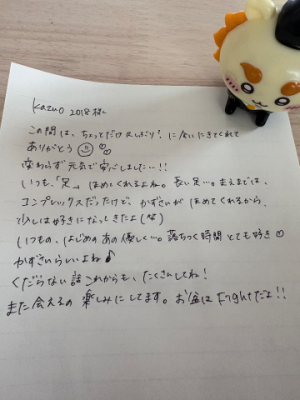 kazuo 2018 様
この間は、ちょっとだけ久しぶり?に会いにきてくれて
ありがとう
変わらず元気で安心しました…!!
いつも、「足」ほめてくれるよね。長い足…。まえまでは、
コンプレックスだったけど、かずさいがほめてくれるから、
少しは好きになってきたよ(笑)
いつもの、はじめの あの優しく…。落ちつく時間 とても好き
かずさいらしいよね♪
くだらない話 これからも、たくさんしてね!
また会えるの 楽しみにしてます。お盆は Fightだよ!!